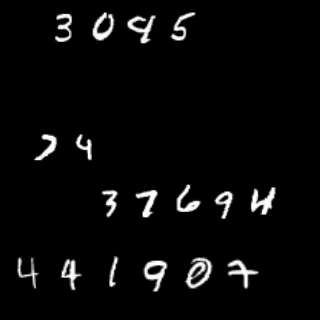 3095
74
37694
441907